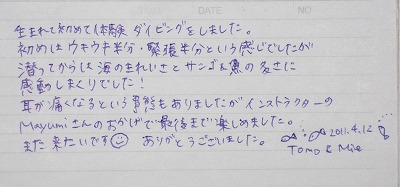 TIME DATE NO
生まれて初めて体験ダイビングをしました。
初めはウキウキ半分・緊張半分という感じでしたが
潜ってからは海のきれいさとサンゴ&魚の多さに
感動しまくりでした!
耳が痛くなるという事態もありましたがインストラクターの
Mayumiさんのおかげで最後まで楽しめました。
また来たいです☺ ありがとうございました。
2011.4.12
Tomo & Mie